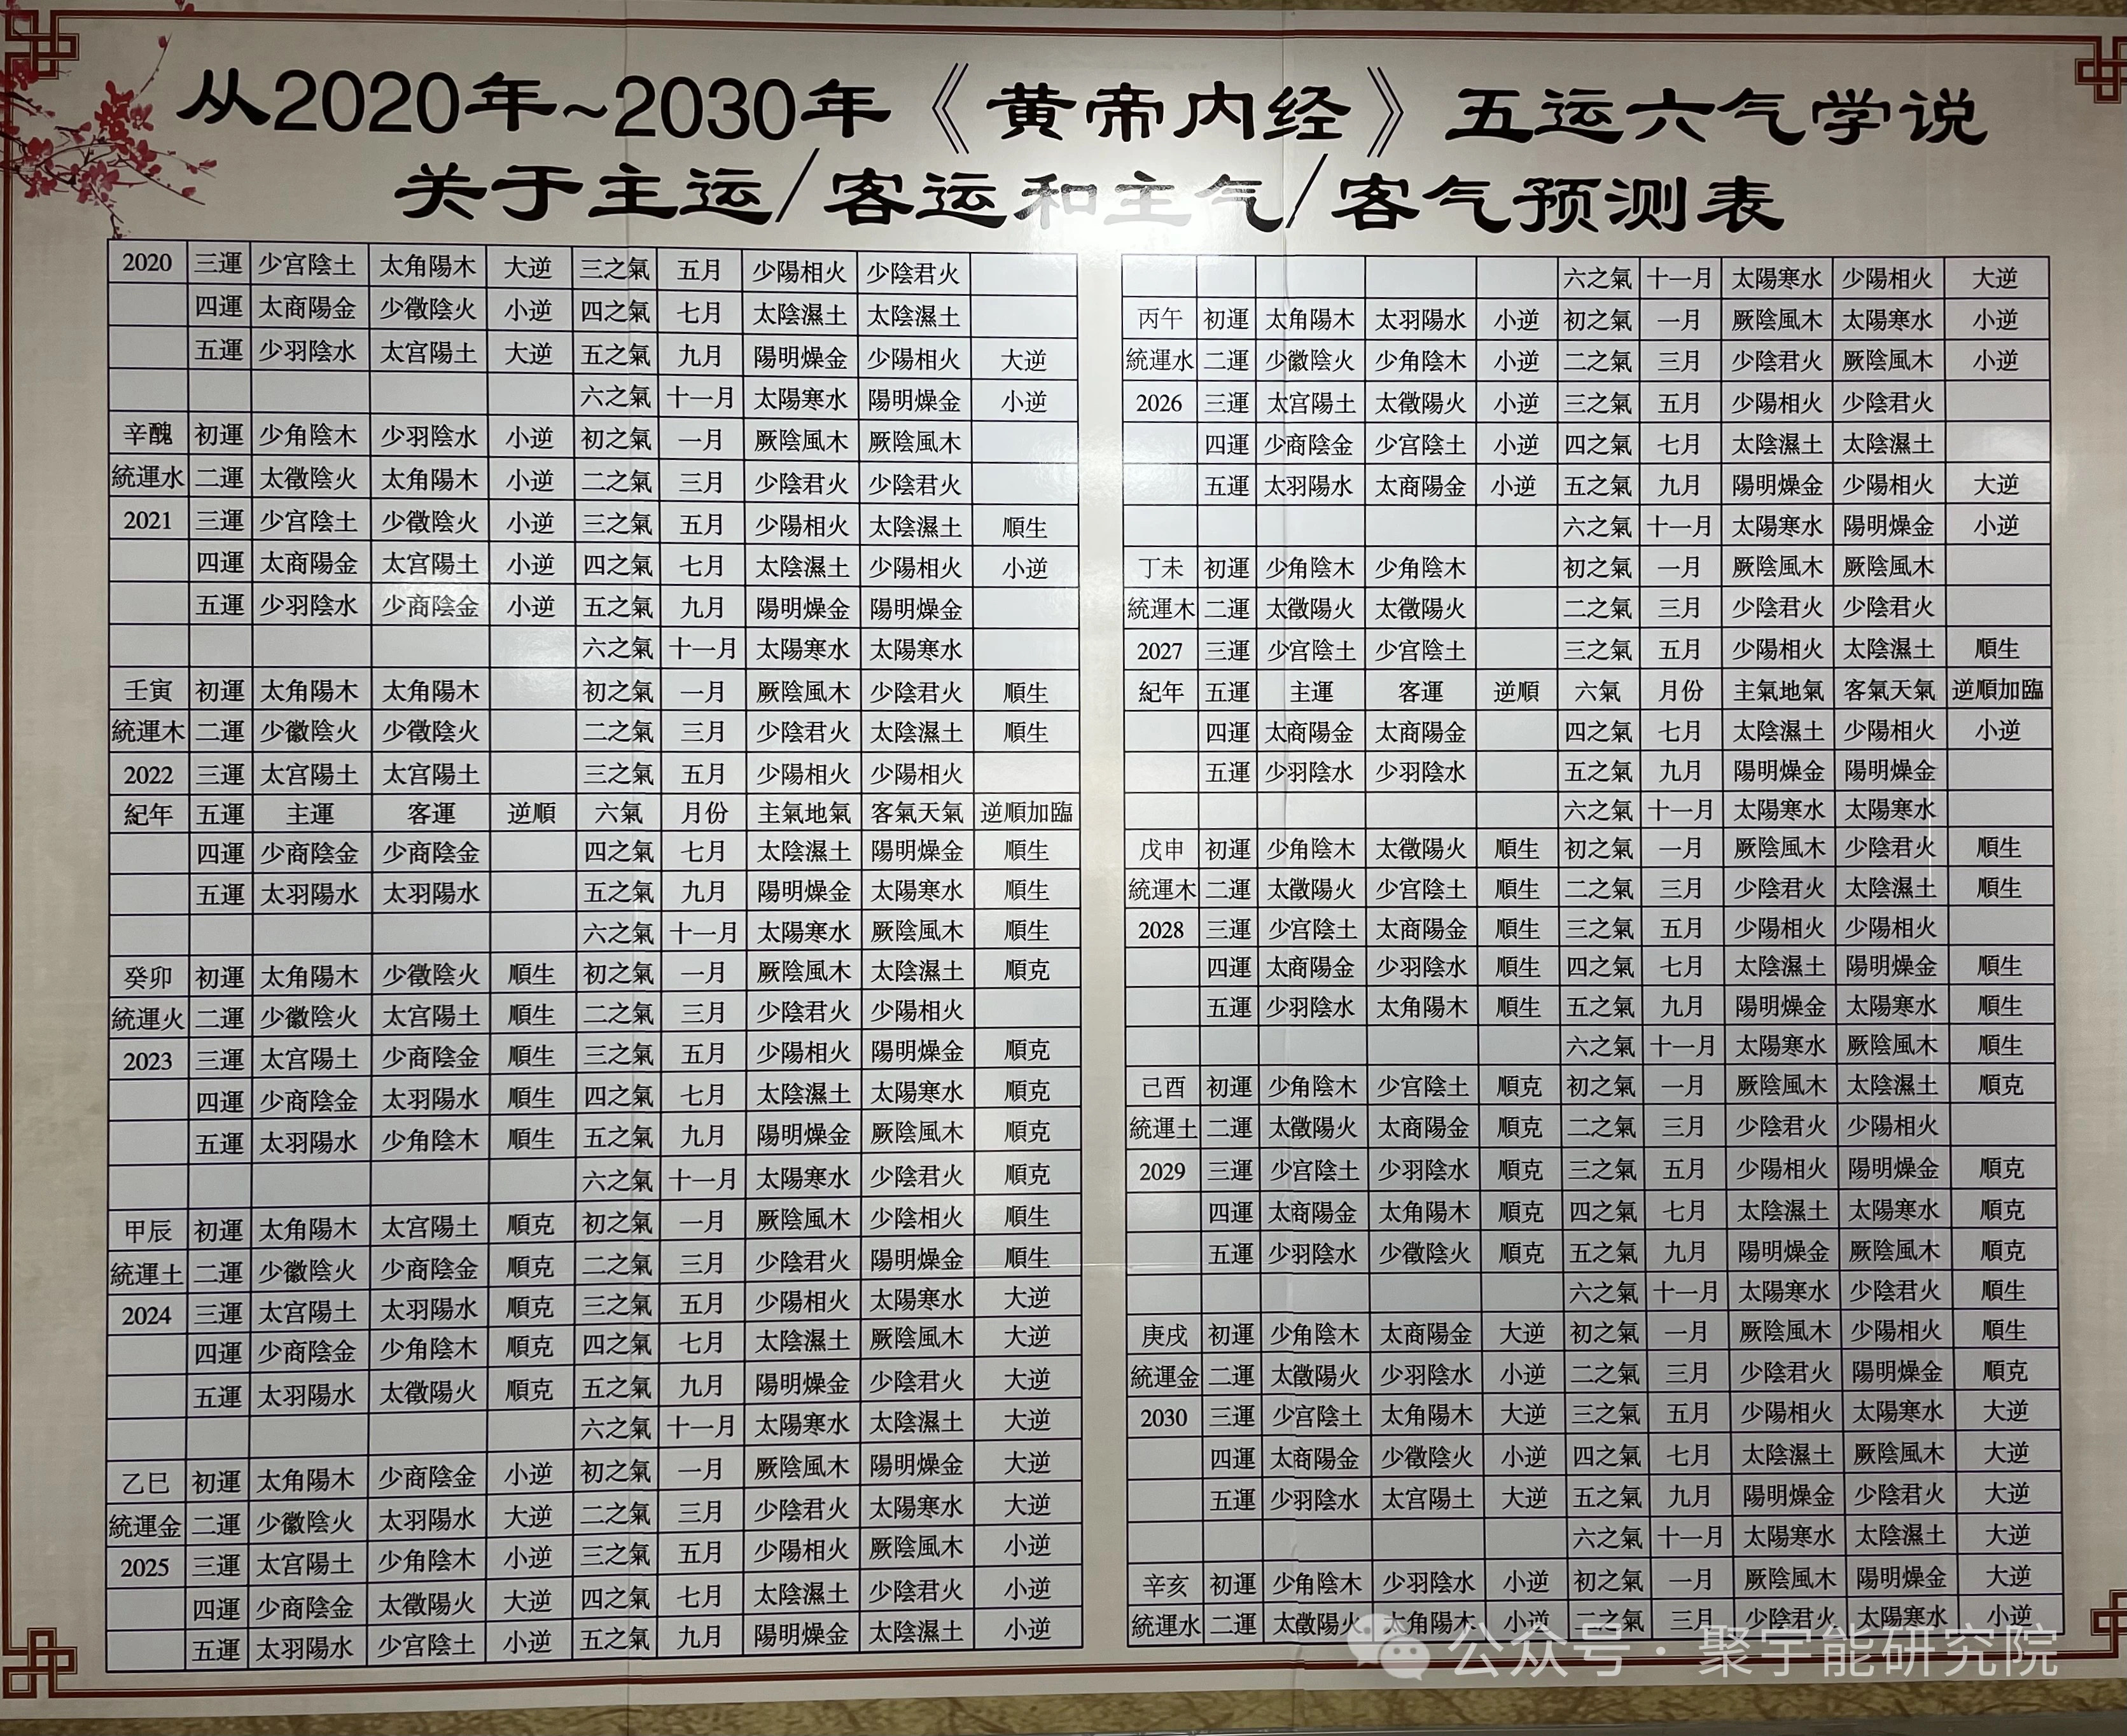 从2020年~2030年《黄帝内经》五运六气学说
关于主运/客运和主气/客气预测表
2020 三運 少宫陰土 太角陽木 大逆 三之氣 五月 少陽相火 少陰君火
四運 太商陽金 少徵陰火 小逆 四之氣 七月 太陰濕土 太陰濕土
五運 少羽陰水 太宫陽土 大逆 五之氣 九月 陽明燥金 少陽相火 大逆
六之氣 十一月 太陽寒水 陽明燥金 小逆
辛醜 初運 少角陰木 少羽陰水 小逆 初之氣 一月 厥陰風木 厥陰風木
統運水 二運 太徵陰火 太角陽木 小逆 二之氣 三月 少陰君火 少陰君火
2021 三運 少宫陰土 少徵陰火 小逆 三之氣 五月 少陽相火 太陰濕土 順生
四運 太商陽金 太宫陽土 小逆 四之氣 七月 太陰濕土 少陽相火 小逆
五運 少羽陰水 少商陰金 小逆 五之氣 九月 陽明燥金 陽明燥金
六之氣 十一月 太陽寒水 太陽寒水
壬寅 初運 太角陽木 太角陽木 初之氣 一月 厥陰風木 少陰君火 順生
統運木 二運 少徽陰火 少徵陰火 二之氣 三月 少陰君火 太陰濕土 順生
2022 三運 太宫陽土 太宫陽土 三之氣 五月 少陽相火 少陽相火
紀年 五運 主運 客運 逆順 六氣 月份 主氣地氣 客氣天氣 逆順加臨
四運 少商陰金 少商陰金 四之氣 七月 太陰濕土 陽明燥金 順生
五運 太羽陽水 太羽陽水 五之氣 九月 陽明燥金 太陽寒水 順生
六之氣 十一月 太陽寒水 厥陰風木 順生
癸卯 初運 太角陽木 少徵陰火 順生 初之氣 一月 厥陰風木 太陰濕土 順克
統運火 二運 少徽陰火 太宫陽土 順生 二之氣 三月 少陰君火 少陽相火
2023 三運 太宫陽土 少商陰金 順生 三之氣 五月 少陽相火 陽明燥金 順克
四運 少商陰金 太羽陽水 順生 四之氣 七月 太陰濕土 太陽寒水 順克
五運 太羽陽水 少角陰木 順生 五之氣 九月 陽明燥金 厥陰風木 順克
六之氣 十一月 太陽寒水 少陰君火 順克
甲辰 初運 太角陽木 太宫陽土 順克 初之氣 一月 厥陰風木 少陰相火 順生
統運土 二運 少徽陰火 少商陰金 順克 二之氣 三月 少陰君火 陽明燥金 順生
2024 三運 太宫陽土 太羽陽水 順克 三之氣 五月 少陽相火 太陽寒水 大逆
四運 少商陰金 少角陰木 順克 四之氣 七月 太陰濕土 厥陰風木 大逆
五運 太羽陽水 太徵陽火 順克 五之氣 九月 陽明燥金 少陰君火 大逆
六之氣 十一月 太陽寒水 太陰濕土 大逆
乙巳 初運 太角陽木 少商陰金 小逆 初之氣 一月 厥陰風木 陽明燥金 大逆
統運金 二運 少徽陰火 太羽陽水 大逆 二之氣 三月 少陰君火 太陽寒水 大逆
2025 三運 太宫陽土 少角陰木 小逆 三之氣 五月 少陽相火 厥陰風木 小逆
四運 少商陰金 太徵陽火 大逆 四之氣 七月 太陰濕土 少陰君火 小逆
五運 太羽陽水 少宫陰土 小逆 五之氣 九月 陽明燥金 太陰濕土 小逆
六之氣 十一月 太陽寒水 少陽相火 大逆
丙午 初運 太角陽木 太羽陽水 小逆 初之氣 一月 厥陰風木 太陽寒水 小逆
統運水 二運 少徽陰火 少角陰木 小逆 二之氣 三月 少陰君火 厥陰風木 小逆
2026 三運 太宫陽土 太徵陽火 小逆 三之氣 五月 少陽相火 少陰君火
四運 少商陰金 少宫陰土 小逆 四之氣 七月 太陰濕土 太陰濕土
五運 太羽陽水 太商陽金 小逆 五之氣 九月 陽明燥金 少陽相火 大逆
六之氣 十一月 太陽寒水 陽明燥金 小逆
丁未 初運 少角陰木 少角陰木 初之氣 一月 厥陰風木 厥陰風木
統運木 二運 太徵陽火 太徵陽火 二之氣 三月 少陰君火 少陰君火
2027 三運 少宫陰土 少宫陰土 三之氣 五月 少陽相火 太陰濕土 順生
紀年 五運 主運 客運 逆順 六氣 月份 主氣地氣 客氣天氣 逆順加臨
四運 太商陽金 太商陽金 四之氣 七月 太陰濕土 少陽相火 小逆
五運 少羽陰水 少羽陰水 五之氣 九月 陽明燥金 陽明燥金
六之氣 十一月 太陽寒水 太陽寒水
戊申 初運 少角陰木 太徵陽火 順生 初之氣 一月 厥陰風木 少陰君火 順生
統運木 二運 太徵陽火 少宫陰土 順生 二之氣 三月 少陰君火 太陰濕土 順生
2028 三運 少宫陰土 太商陽金 順生 三之氣 五月 少陽相火 少陽相火
四運 太商陽金 少羽陰水 順生 四之氣 七月 太陰濕土 陽明燥金 順生
五運 少羽陰水 太角陽木 順生 五之氣 九月 陽明燥金 太陽寒水 順生
六之氣 十一月 太陽寒水 厥陰風木 順生
己酉 初運 少角陰木 少宫陰土 順克 初之氣 一月 厥陰風木 太陰濕土 順克
統運土 二運 太徵陽火 太商陽金 順克 二之氣 三月 少陰君火 少陽相火
2029 三運 少宫陰土 少羽陰水 順克 三之氣 五月 少陽相火 陽明燥金 順克
四運 太商陽金 太角陽木 順克 四之氣 七月 太陰濕土 太陽寒水 順克
五運 少羽陰水 少徵陰火 順克 五之氣 九月 陽明燥金 厥陰風木 順克
六之氣 十一月 太陽寒水 少陰君火 順生
庚戌 初運 少角陰木 太商陽金 大逆 初之氣 一月 厥陰風木 少陽相火 順生
統運金 二運 太徵陽火 少羽陰水 小逆 二之氣 三月 少陰君火 陽明燥金 順克
2030 三運 少宫陰土 太角陽木 大逆 三之氣 五月 少陽相火 太陽寒水 大逆
四運 太商陽金 少徵陰火 小逆 四之氣 七月 太陰濕土 厥陰風木 大逆
五運 少羽陰水 太宫陽土 大逆 五之氣 九月 陽明燥金 少陰君火 大逆
六之氣 十一月 太陽寒水 太陰濕土 大逆
辛亥 初運 少角陰木 少羽陰水 小逆 初之氣 一月 厥陰風木 陽明燥金 大逆
統運水 二運 太徵陽火 太角陽木 小逆 二之氣 三月 少陰君火 太陽寒水 小逆
公众号·聚宇能研究院